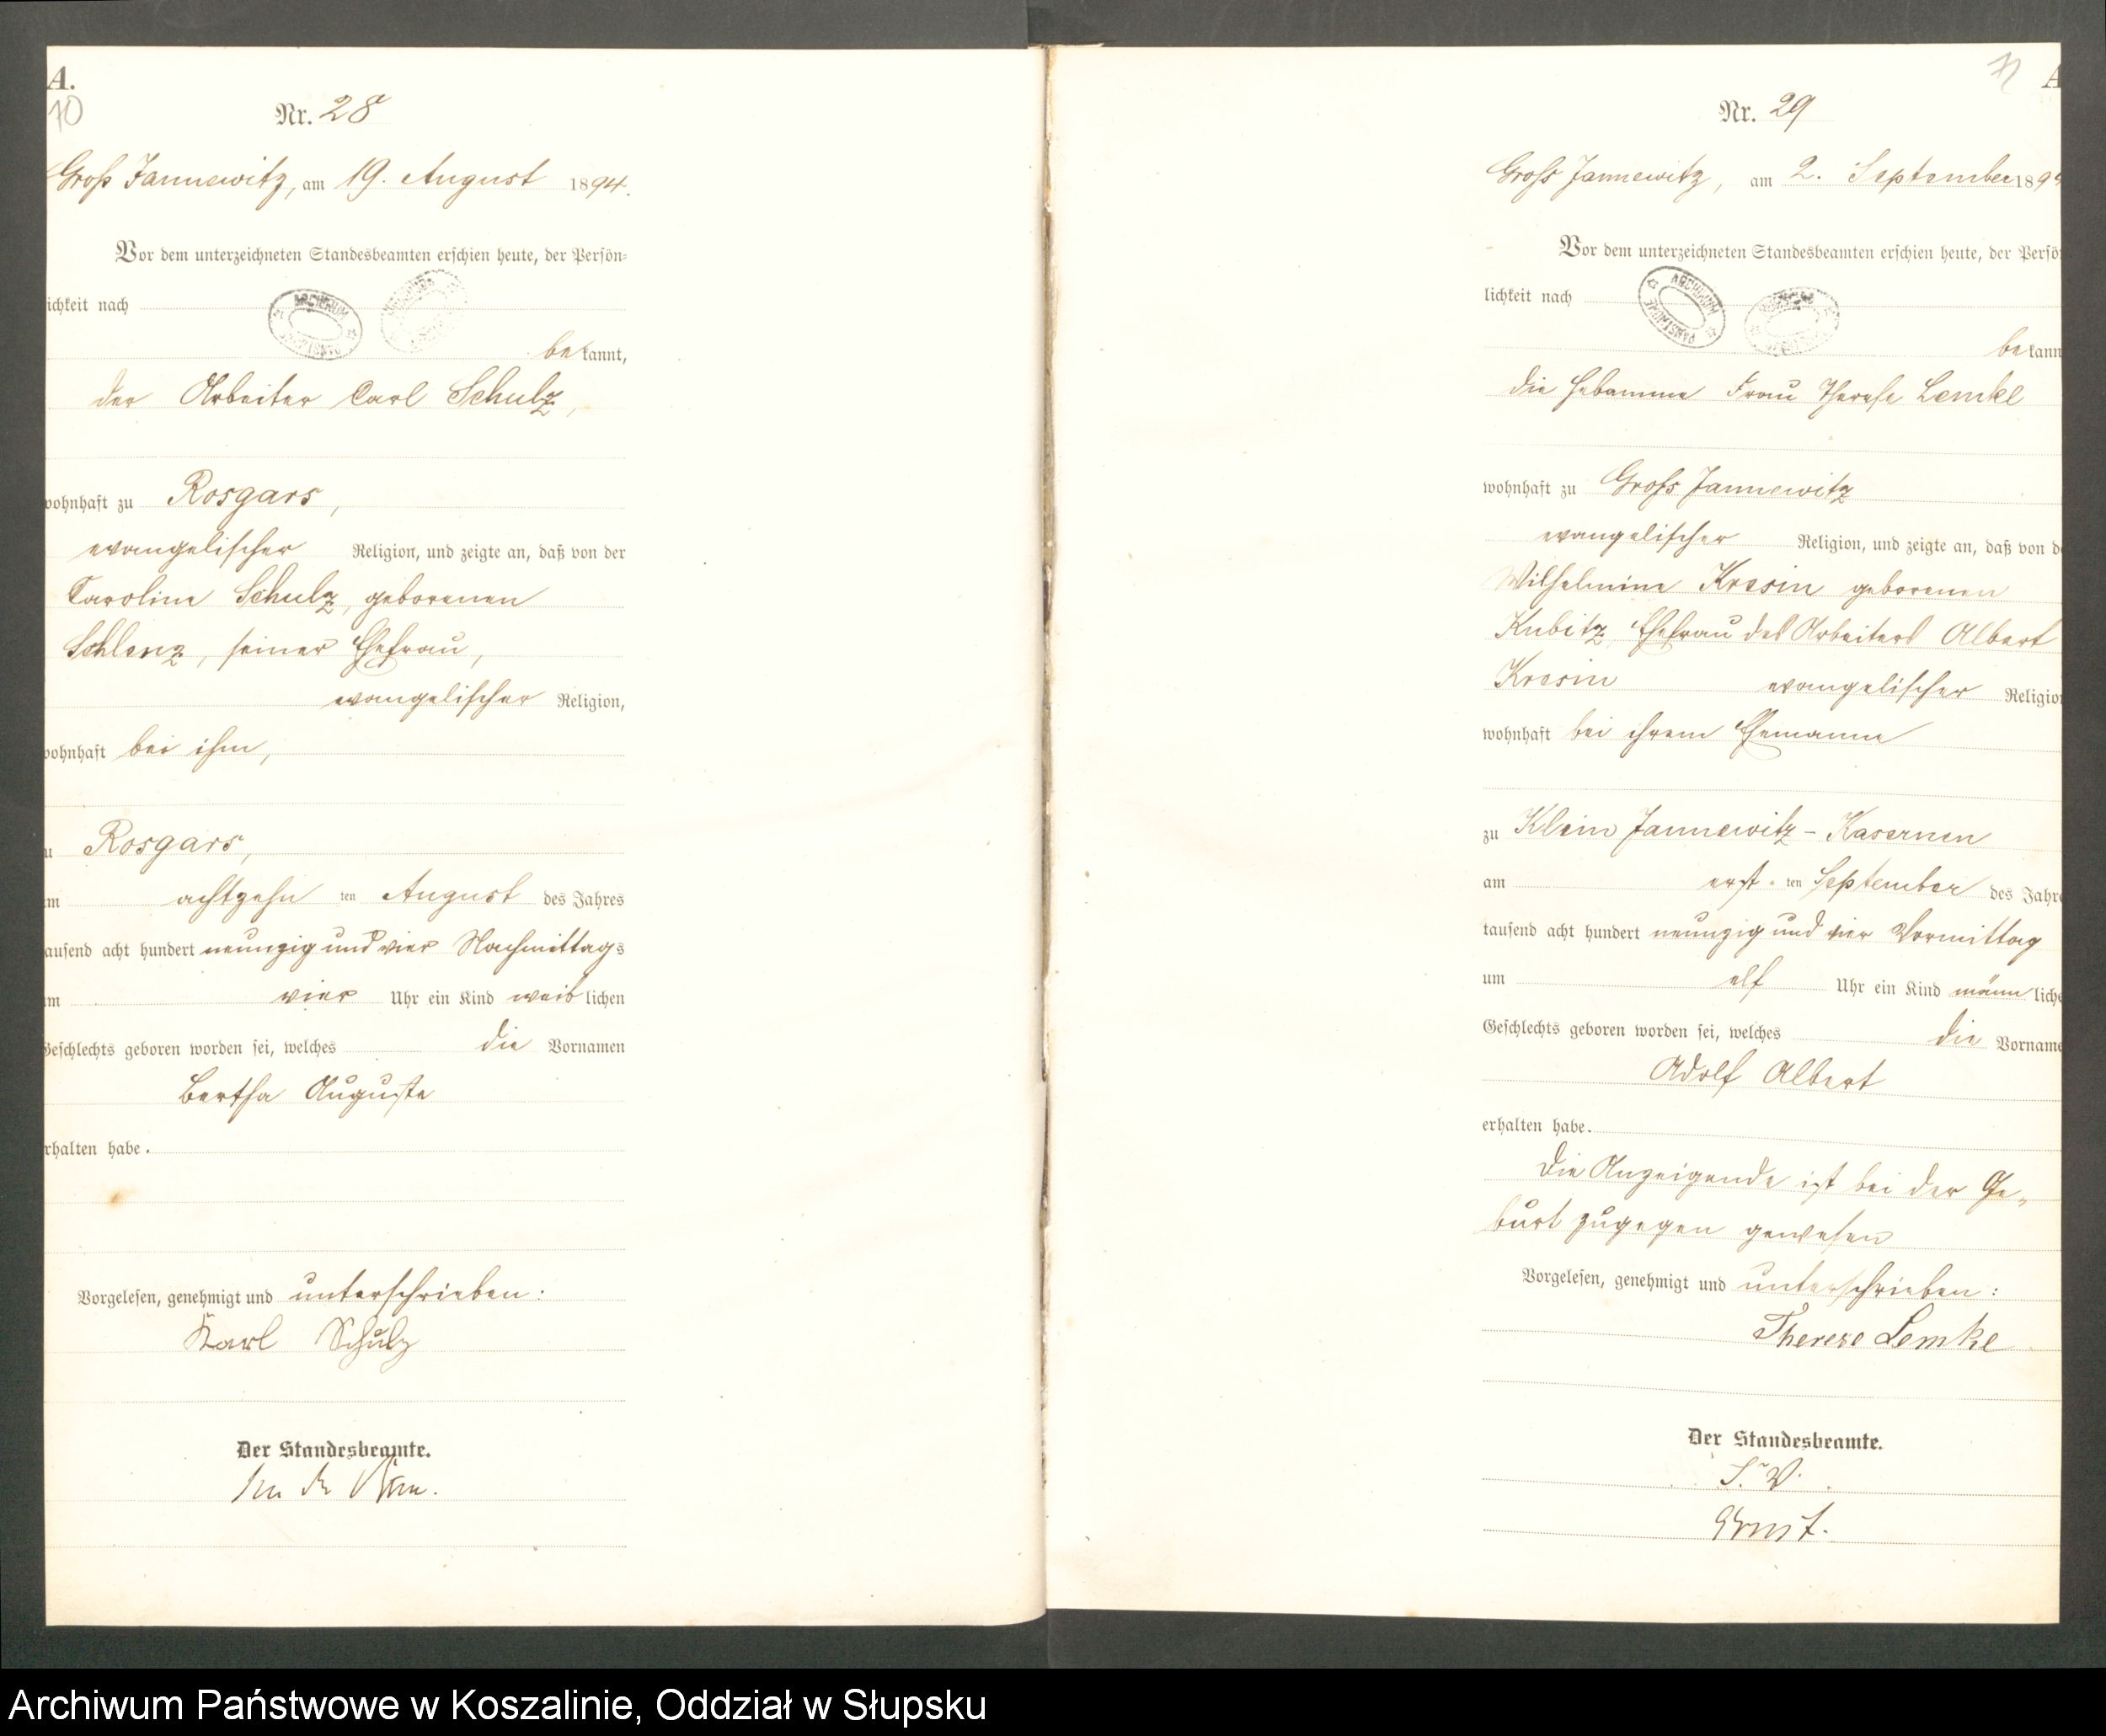 A.
70
Nr. 28
Groß Jannewitz, am 19. August 1894.
Vor dem unterzeichneten Standesbeamten erschien heute, der Persön=
ichkeit nach
ARCHIWUM PAŃSTWOWE
bekannt,
der Arbeiter Carl Schulz,
wohnhaft zu Rosgars,
evangelischer Religion, und zeigte an, daß von der
Caroline Schulz, geborenen
Schlenz, seiner Ehefrau,
evangelischer Religion,
wohnhaft bei ihm,
u Rosgars,
am achtzehn ten August des Jahres
tausend acht hundert neunzig und vier Nachmittags
um vier Uhr ein Kind weiblichen
Geschlechts geboren worden sei, welches die Vornamen
Bertha Auguste
erhalten habe.
Vorgelesen, genehmigt und unterschrieben:
Karl Schulz
Der Standesbeamte.
71
A
Nr. 29
Gross Jannewitz, am 2. September 189
Vor dem unterzeichneten Standesbeamten erschien heute, der Persö
lichkeit nach
ARCHIWUM PAŃSTWOWE
bekann
die Hebamme Frau Therese Lemke
wohnhaft zu Gross Jannewitz
evangelischer Religion, und zeigte an, daß von de
Wilhelmine Kresin geborenen
Kubitz, Ehefrau des Arbeiters Albert
Kresin evangelischer Religion
wohnhaft bei ihrem Ehemanne
zu Klein Jannewitz - Kasernen
am erst. ten September des Jahre
tausend acht hundert neunzig und vier Vormittag
um elf Uhr ein Kind männliche
Geschlechts geboren worden sei, welches die Vorname
Adolf Albert
erhalten habe.
Die Anzeigende ist bei der Ge„
burt zugegen gewesen
Vorgelesen, genehmigt und unterschrieben:
Therese Lemke
Der Standesbeamte.
I. V.
Ernst.
Archiwum Państwowe w Koszalinie, Oddział w Słupsku